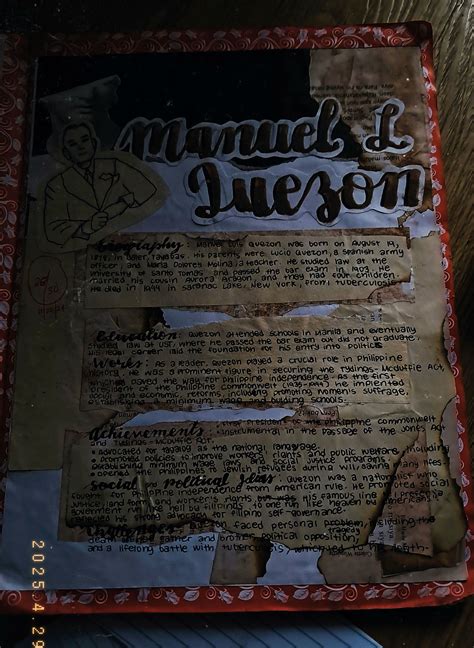 Manuel L
Quezon
Biography: Manuel Luis Quezon was born on August 19,
1878, in Baler, Tayabas. His parents were Lucio Quezon, a Spanish army
officer and Maria Dolores Molina, a teacher. He studied law at the
University of Santo Tomas and passed the bar exam in 1903. He
married his cousin Aurora Aragon and they had four children.
He died in 1944 in Saranac Lake, New York, from tuberculosis
Education: Quezon attended schools in Manila and eventually
studied where he passed the bar exam but did not graduate.
His legal career laid the foundation for his entry into politics
Works: As a leader, Quezon played a crucial role in Philippine
history. He was a prominent figure in securing the Tydings-McDuffie Act,
which paved the way for Philippine independence. As the first
president of the Philippine Commonwealth (1935-1944) he implented
social and economic reforms, including promoting women's suffrage,
establishing a minimum wage and building schools.
Achievements: president of the Philippine commonwealth
instrumental in the passage of the Jones Act
and Tydings-McDuffie Act.
• advocated for Tagalog as the national language.
• promoted policies to improve workers rights and public welfare, including
establishing minimum wage laws and programs.
• opened the Philippines to Jewish refugees during WII, saving many lives
Social and political ideas: Quezon was a nationalist who
fought for Philippine independence from American rule. He promoted social
justice and workers rights. His famous line "I prefer a
government run like hell by Filipinos to one run like heaven by Americans"
his strong advocacy for Filipino self-governance.
faced personal problem, including the
tragedy
death of his father and brother, political opposition,
and a lifelong battle with tuberculosis, which led to his death.
2025.4.29